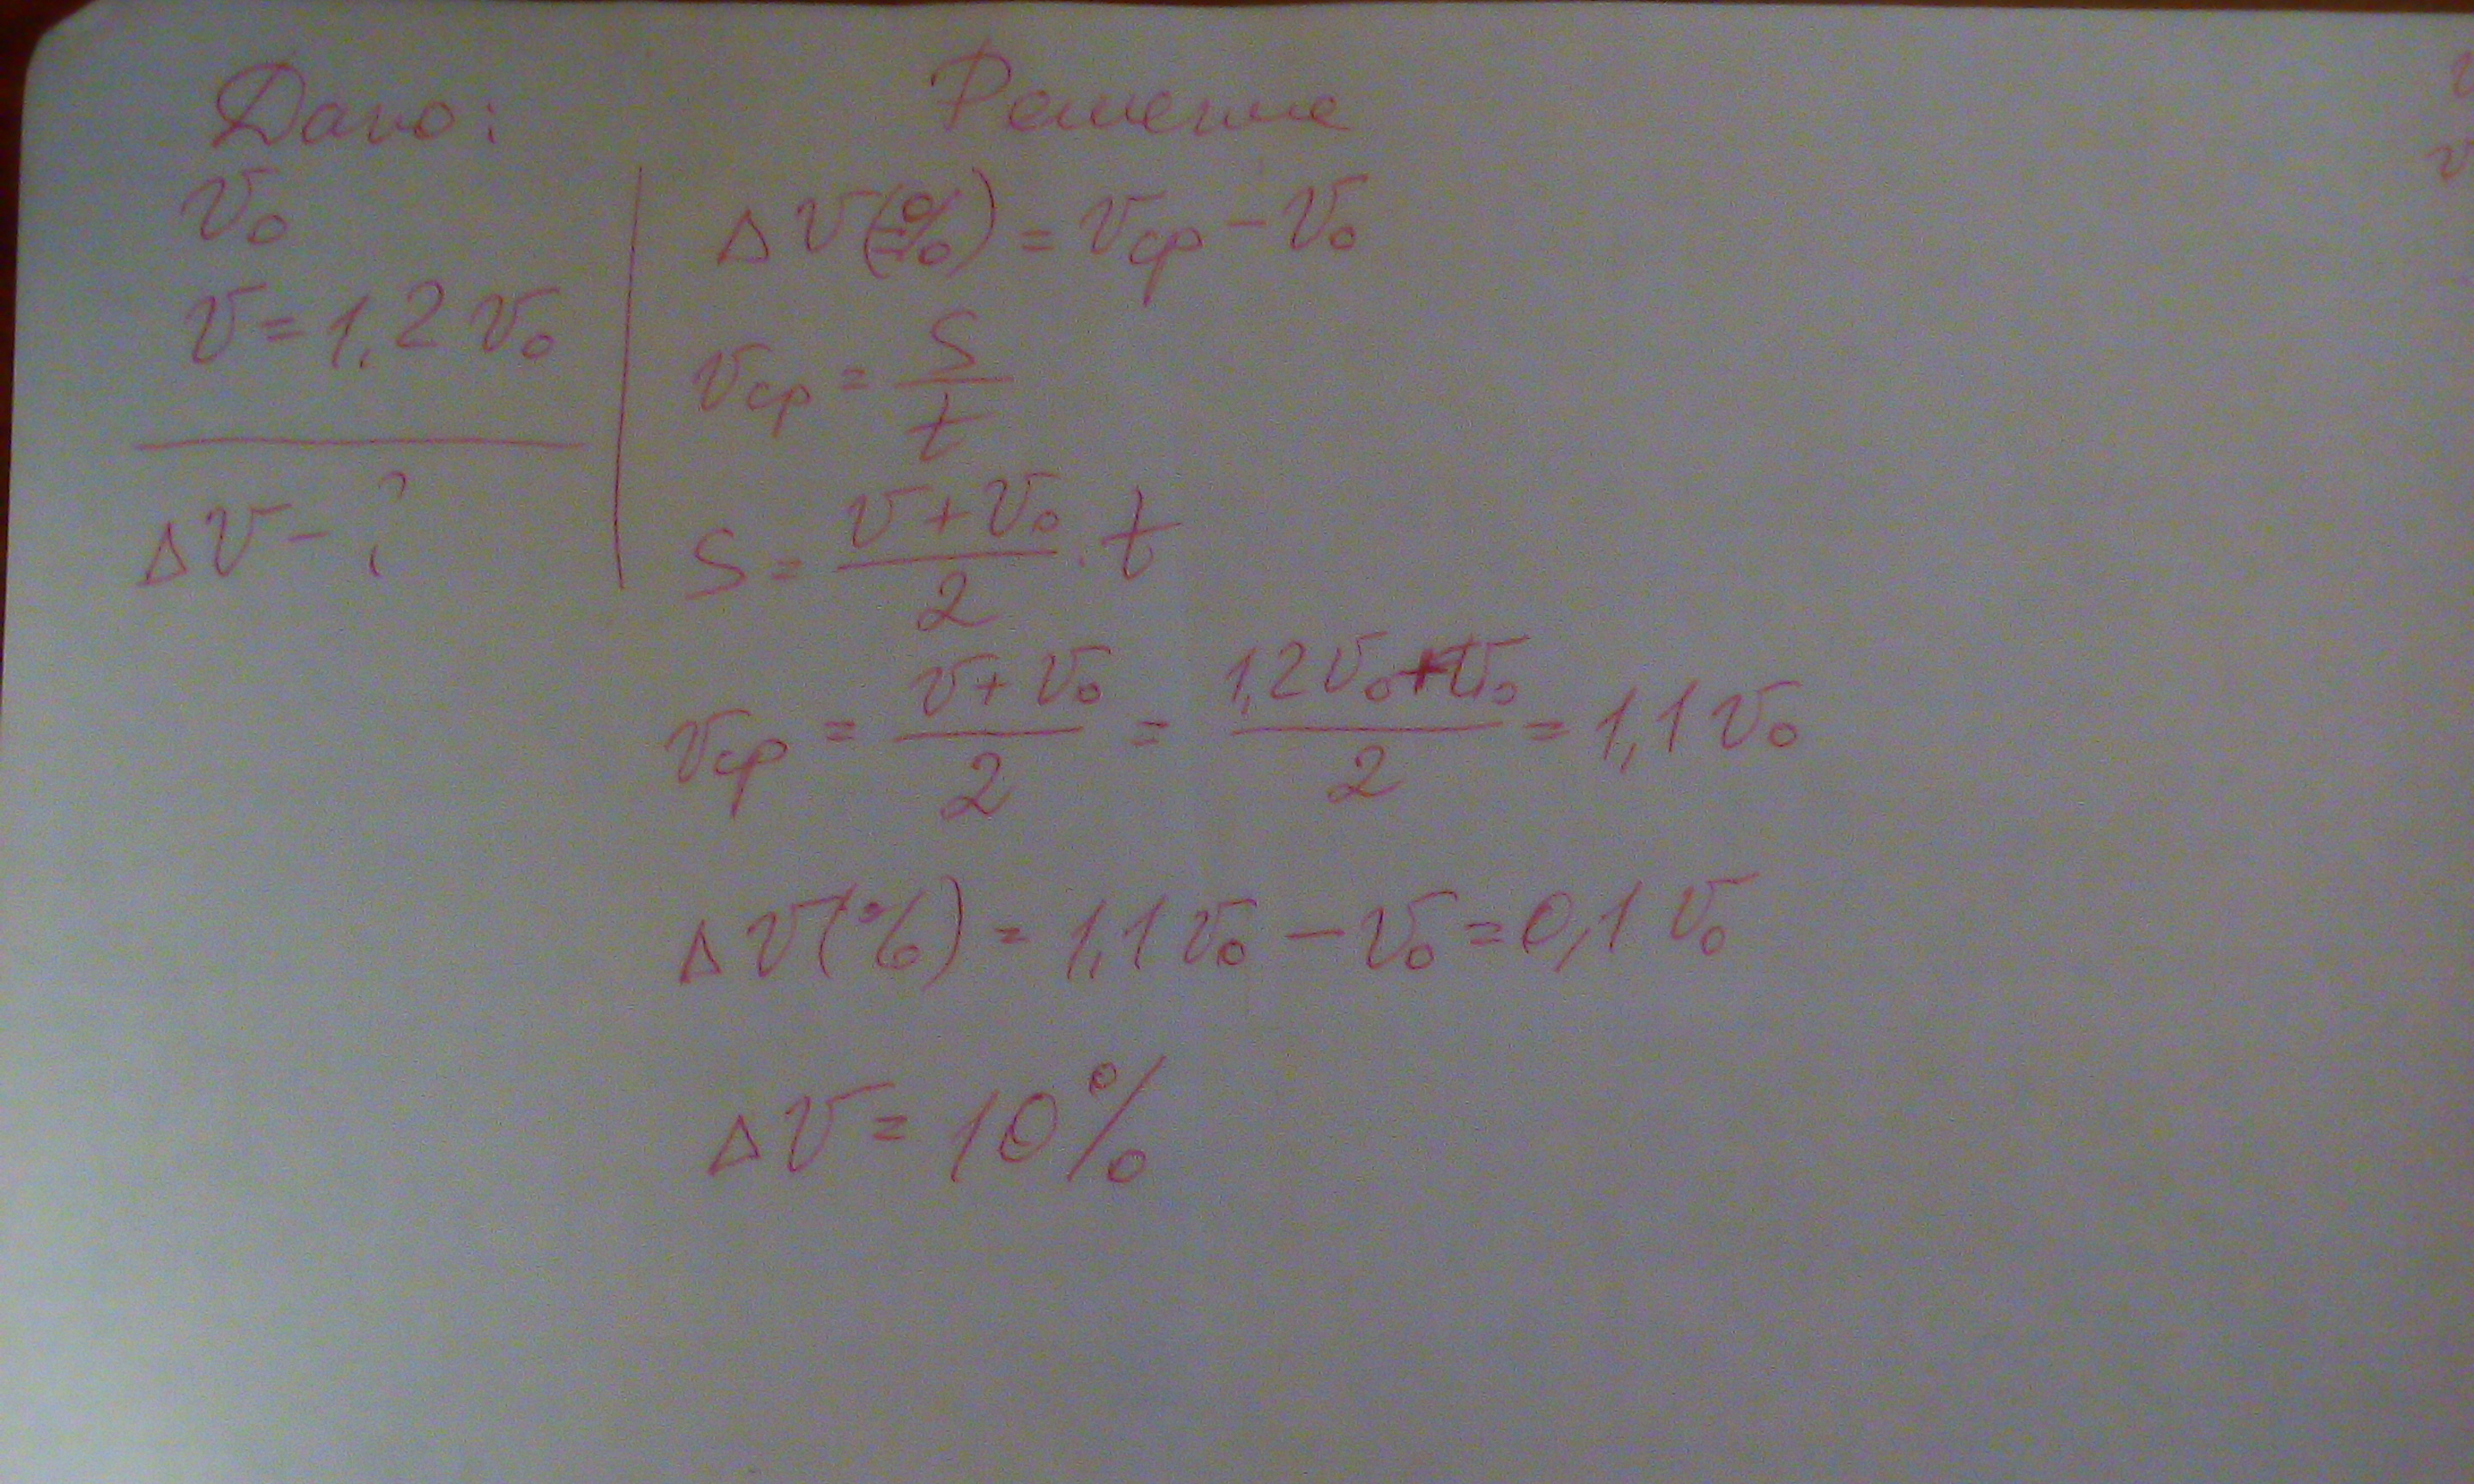 Дано:
v₀
v = 1,2 v₀
Δv - ?
Решение
Δv(%) = vср - v₀
vср = S/t
S = (v + v₀)/2 · t
vср = (v + v₀)/2 = (1,2v₀ + v₀)/2 = 1,1 v₀
Δv(%) = 1,1 v₀ - v₀ = 0,1 v₀
Δv = 10%
v
v